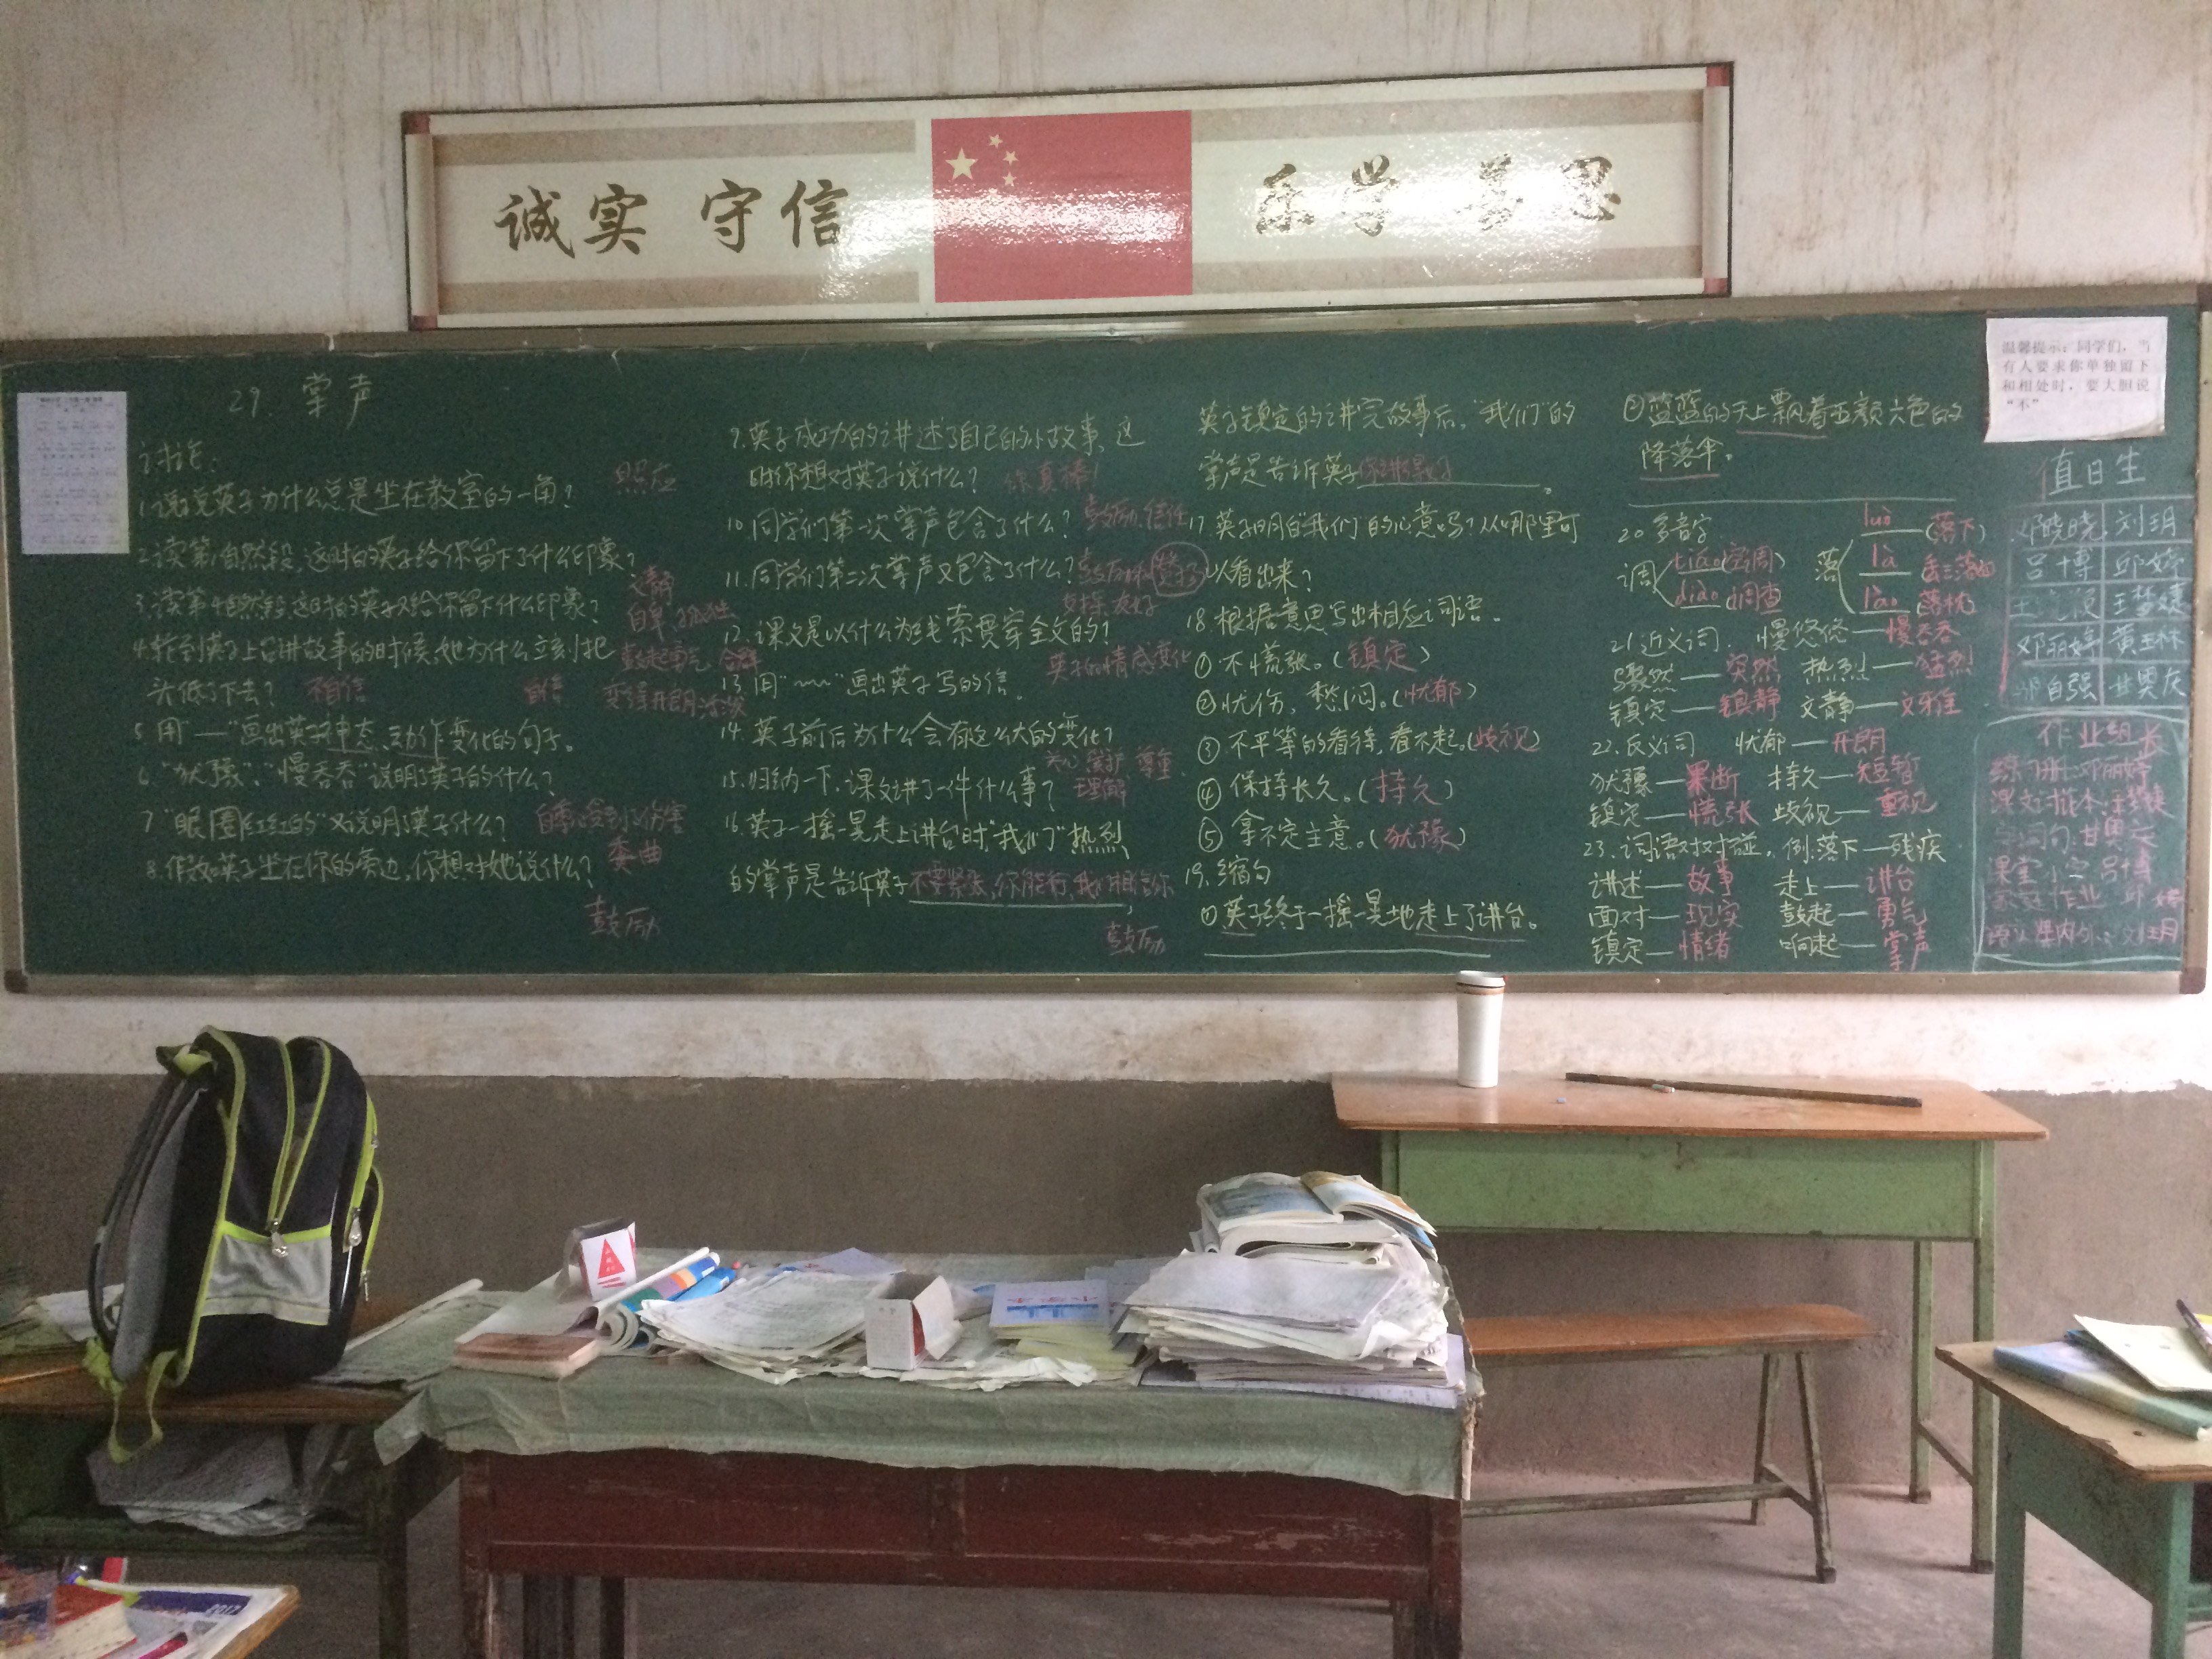 诚实 守信
乐学 善思
29. 掌声
讨论:
1.谈谈英子为什么总是坐在教室的一角? 照应
2.读第1自然段,这时的英子给你留下了什么印象?
文静
自卑、孤独
4.轮到英子上台讲故事的时候,她为什么立刻把
头低了下去? 不自信
自信
变得开朗活泼
5.用"——"画出英子神态、动作变化的句子。
6."犹豫"、"慢吞吞"说明了英子的什么?
7."眼圈红红的"又说明英子什么? 自尊心受到伤害
委曲
8.假如英子坐在你的旁边,你想对她说什么?
鼓励
9.英子成功的讲述了自己的小故事,这
时你想对英子说什么? 你真棒!
10.同学们第一次掌声包含了什么? 鼓励、信任
11.同学们第二次掌声又包含了什么? 鼓励和赞扬
12.课文是以什么为线索贯穿全文的?
英子的情感变化
13.用"﹏﹏"画出英子写的信。
14.英子前后为什么会有这么大的变化?
关心 爱护 尊重
理解
15.归纳一下,课文讲了一件什么事?
16.英子一摇一晃走上讲台时"我们"热烈
的掌声是告诉英子不要紧张,你能行,我们相信你,
鼓励
英子镇定的讲完故事后,"我们"的
掌声是告诉英子
17.英子明白"我们"的心意吗?从哪里可
以看出来?
18.根据意思写出相应词语。
①不慌张。(镇定)
②忧伤,愁闷。(忧郁)
③不平等的看待,看不起。(歧视)
④保持长久。(持久)
⑤拿不定主意。(犹豫)
19.缩句
①英子终于一摇一晃地走上了讲台。
②蓝蓝的天上飘着五颜六色的
降落伞。
20.多音字
调 tiáo(空调) diào(调查)
落 luò(落下) là(丢三落四) lào(落枕)
21.近义词. 慢悠悠—慢吞吞
骤然—突然 热烈—猛烈
镇定—镇静 文静—文雅
22.反义词 忧郁—开朗
犹豫—果断 持久—短暂
镇定—慌张 歧视—重视
23.词语对对碰。例:落下—残疾
讲述—故事 走上—讲台
面对—现实 鼓起—勇气
镇定—情绪 响起—掌声
温馨提示:同学们,当
有人要求你单独留下
和相处时,要大胆说
"不"
值日生
邓晓晓 刘玥
吕博 邱婷
邓丽婷 黄玉林
作业组长
练习册:邓丽婷
2017